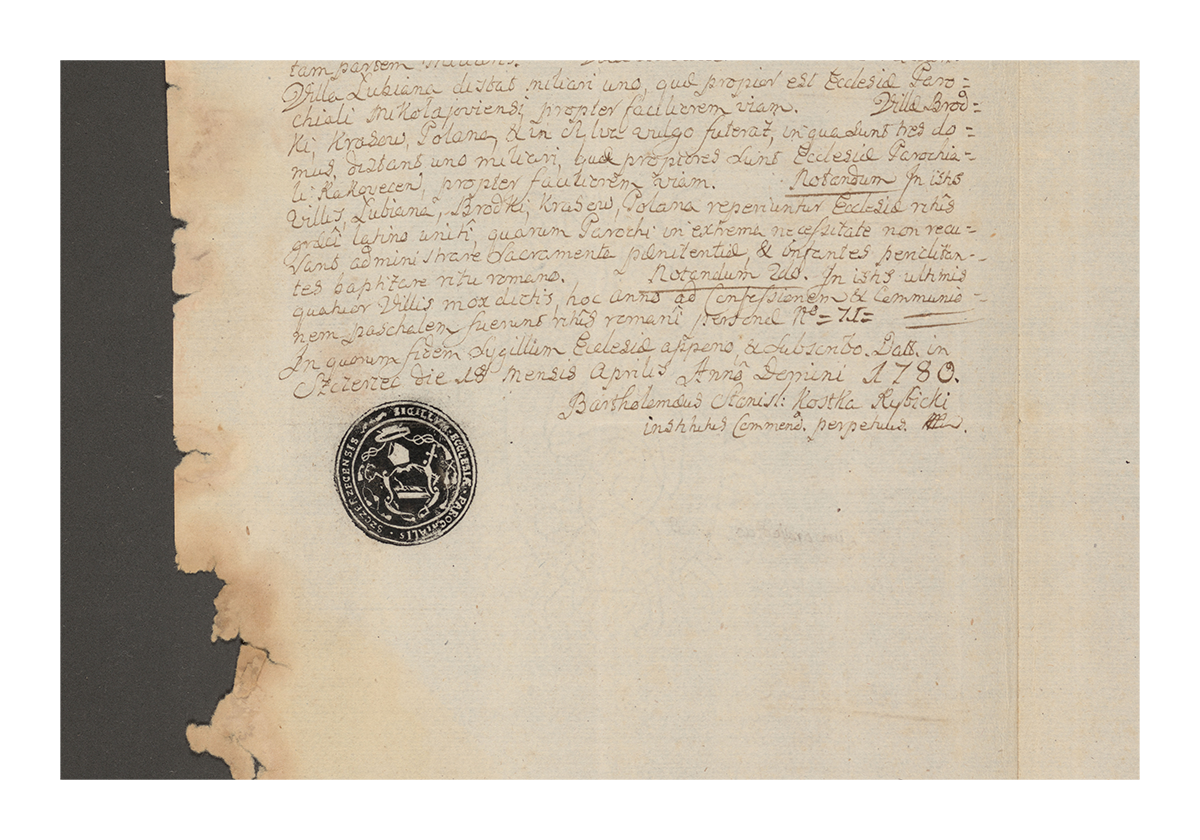 tam partem
Villa Lubiana distat miliari uno, quæ propior est Ecclesiæ Paro=
chiali Mikolajoviensi propter faciliorem viam. Villæ Brod=
ki, Krasow, Polana, & in Sylva vulgo futeraz, in qua sunt tres do=
mus, distant uno miliari, quæ propiores sunt Ecclesiæ Parochia=
li Rakovecen, propter faciliorem viam. Notandum In istis
Villis, Lubiana, Brodki, Krasow, Polana reperiuntur Ecclesiæ ritûs
græci latino uniti, quarum Parochi in extrema necessitate non recu=
sant administrare Sacramenta pœnitentiæ, & Infantes periclitan=
tes baptizare ritu romano. Notandum 2do. In istis ultimis
quatuor Villis mox dictis, hoc anno ad Confessionem & Communio=
nem paschalem fuerunt ritûs romani personæ No = 71=
In quorum fidem Sygillum Ecclesiæ appono, & subscribo. Datt. in
Szczerzec die 18 Mensis Aprilis Anno Domini 1780.
Bartholomæus Stanisl: Kostka Rybicki
institutus Commend. perpetuus
SIGILLUM · ECCLESIÆ · PAROCHIALIS · SZCZERZECENSIS